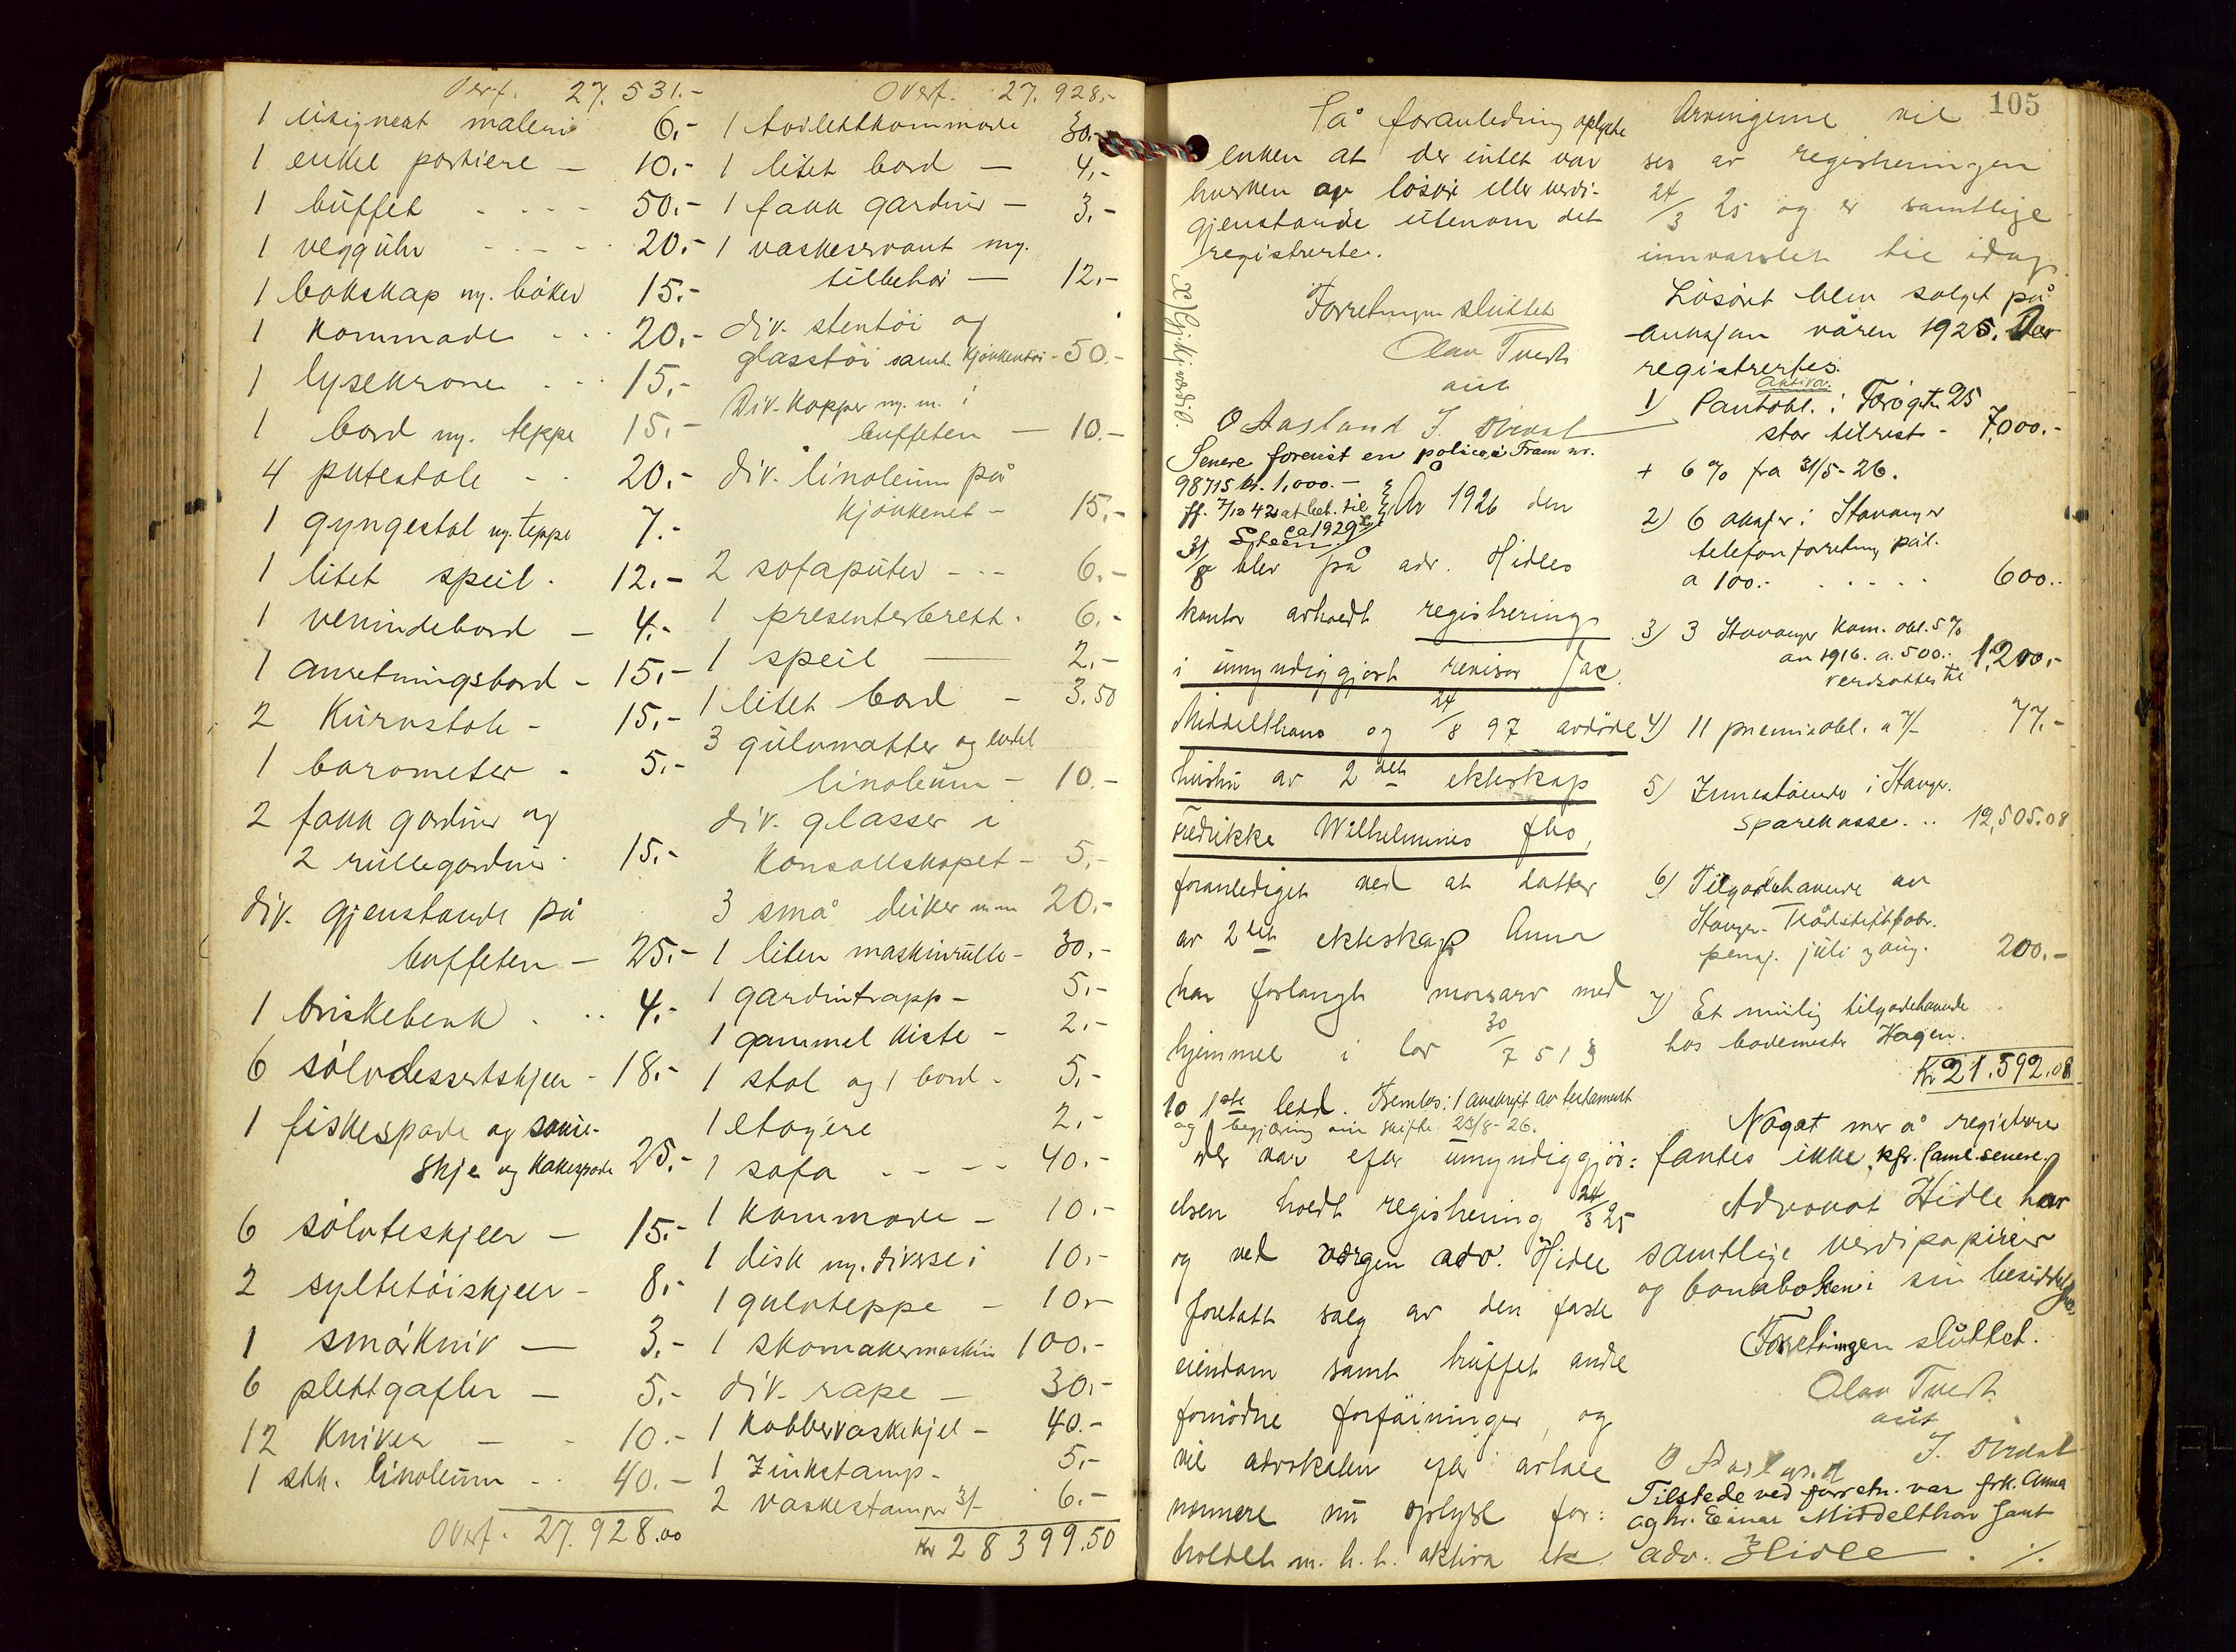 Overf. 27.531.-
1 usignert maleri 6.-
1 enkel portiere — 10.-
1 büffet . - - - 50.-
1 veggühr - - - - 20.-
1 bokskap m. bøker 15.-
1 kommode . . . 20.-
1 lysekrone . . . 15.-
1 bord m. teppe 15.-
4 putestole - - 20.-
1 gyngestol m. teppe 7.-
1 litet speil . 12.-
1 venindebord — 4.-
1 anretningsbord - 15.-
2 Kürvstole - 15.-
1 barometer - 5.-
2 fakk gardiner og
2 rüllegardiner 15.-
div. gjenstande på
buffeten — 25.-
1 briskebenk . . . 4.-
6 sølvdessertskjeer - 18.-
1 fiskespade og sause-
skje og kakespade 25.-
6 sølvteskjeer — 15.-
2 syltetøiskjeer - 8.-
1 smørkniv — 3.-
6 plettgafler — 5.-
12 kniver — - 10.-
1 stk. linoleum - . . 40.-
Overf. 27.928.00
Overf. 27.928.-
1 toilettkommode 30.-
1 litet bord — 4.-
1 fakk gardiner — 3.-
1 vaskeservant m.
tilbehør — 12.-
div. stentøi og
glasstøi samt kjøkkentøi - 50.-
Div. kopper m. m. i
buffeten — 10.-
div. linoleum på
kjøkkenet - 15.-
2 sofapüter - - - 6.-
1 presenterbrett . 6.-
1 speil — 2.-
1 litet bord - 3.50
3 gülvmatter og endel
linoleum - 10.-
div. glasser i
Konsollskapet - 5.-
3 små duker m m 20.-
1 liten maskinrulle - 30.-
1 gardintrapp - 5.-
1 gammel kiste - 2.-
1 stol og 1 bord - 5.-
1 etagere 2.-
1 sofa - - - - 40.-
1 kommode - 10.-
1 disk m. diverse i 10.-
1 gulvteppe - 10.-
1 skomakermaskin 100.-
div. rape - 30.-
1 Kobbervaskekjel - 40.-
1 Zinkstamp - 5.-
2 vaskestamper 3/- 6.-
Kr 28399.50
På foranledning oplyste
enken at der intet var
hverken av løsøre eller verdi-
gjenstande utenom det
registrerte.
Forretningen sluttet
Olav Tvedt
aut
O Aasland J. Obrdal
Senere forevist en police i Fram nr.
98715 kr. 1,000.-
ff. 7/10 42 at bet. til
ca 1929
År 1926 den
31/8 blev på adv. Hidles
kontor avholdt registrering
i ümyndiggjort revisor Jac.
Middelthons og 24/8 97 avdøde
hustru av 2det ekteskap
Fredrikke Wilhelmines fbo,
foranlediget ved at datter
av 2det ekteskap Anna
har forlangt morsarv med
hjemmel i lov 30/7 51 §
10 1ste ledd. Fremlos: 1 avskrift av testament
og begjæring om skifte 23/8-26.
Der var efter ümyndiggjør-
elsen holdt registrering 24/3 25
og ved værgen adv. Hidle
foretatt salg av den faste
eiendom samt trüffet andre
fornødne forføininger, og
vil advokaten efter avtale
nærmere nü oplyse for:
holdet m. h. t. aktiva etc.
Arvingerne vil 105
ses av registreringen
24/3 25 og er samtlige
innvarslet til idag.
Løsøret blev solgt på
auksjon våren 1925. Der
registrertes.
Aktiva.
1) Pantobl. i Torggt. 25
stor tilrest - 7,000.-
+ 6 % fra 31/5-26.
2) 6 aksjer i Stavanger
telefonforretning pål.
a 100.- . . . . . 600.-
3) 3 Stavanger Kom. obl. 5 %
av 1916. a. 500.-
verdsattes til 1,200.-
4) 11 premieobl. a 7/- 77.-
5) Innestående i Stavger.
Sparekasse. .. 12,505.08
6) Tilgodehavende av
Stavger. Trådstiftfabr.
pensj. juli og aug. 200.-
7) Et mulig tilgodehavende
hos bademester Hagen.
Kr 21.592.08
Noget mer å registrere
fantes ikke, kfr. saml. senere.
Advokat Hidle har
samtlige verdipapirer
og bankboken i sin besiddelse
Forretningen sluttet.
Olav Tvedt
aut
O Aasland J. Obrdal
Tilstede ved forretn. var frk. Anna
og hr. Einar Middelthon samt
adv. Hidle . /.